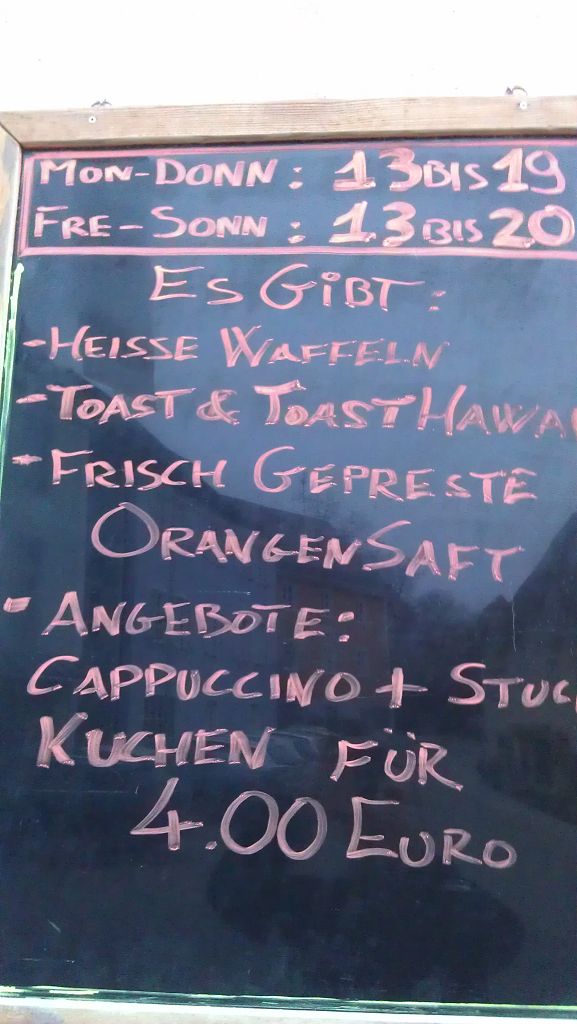 MON-DONN: 13 BIS 19
FRE-SONN: 13 BIS 20
ES GIBT:
-HEISSE WAFFELN
-TOAST & TOAST HAWA
-FRISCH GEPRESTE
ORANGENSAFT
-ANGEBOTE:
CAPPUCCINO + STUC
KUCHEN FÜR
4.00 EURO